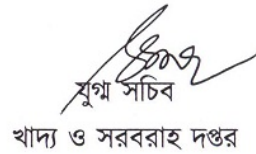 যুগ্ম সচিব
খাদ্য ও সরবরাহ দপ্তর